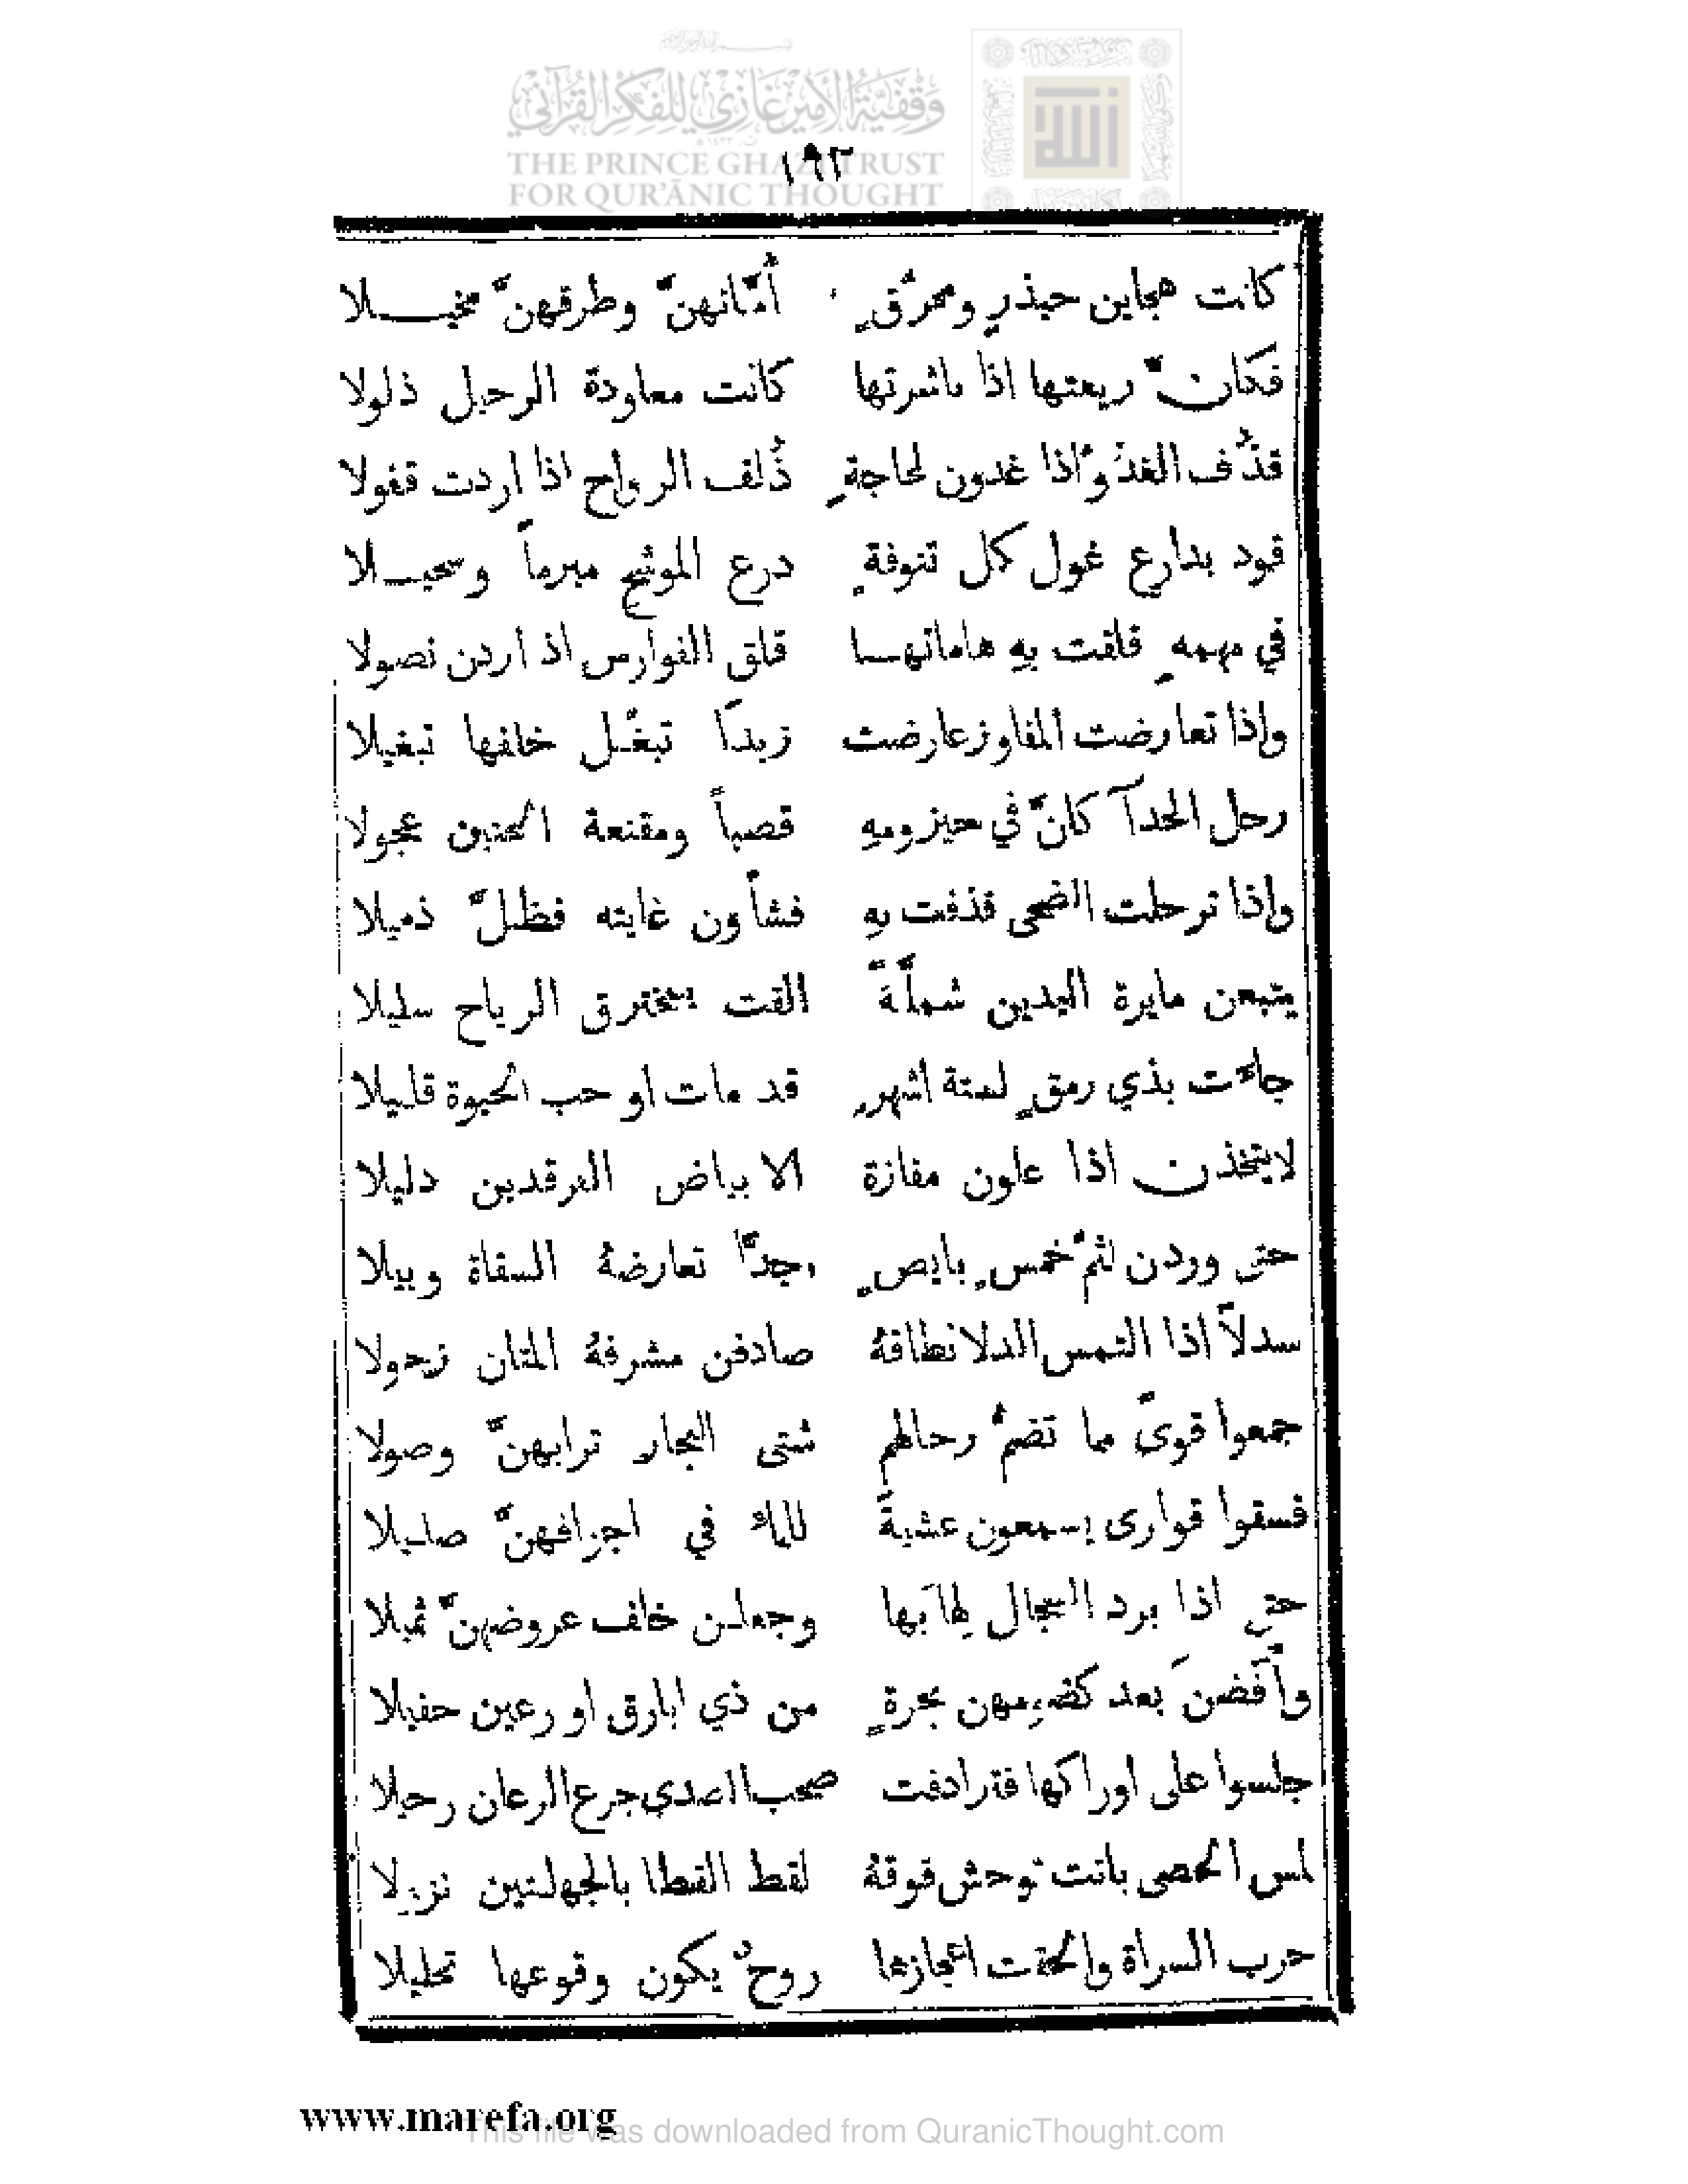 وقفية الأمير غازي للفكر القرآني
THE PRINCE GHAZI TRUST
FOR QUR'ĀNIC THOUGHT
١٩٣
كانت هجاين حيذرٍ ومحرّقٍ أمّاتهنّ وطرقهنّ مخيلا
فكانّ ريعتها اذا باشرتها كانت معاودة الرحيل ذلولا
قذُف الغدوّ اذا غدون لحاجةٍ ذُلف الرواح اذا اردت قفولا
قود بدارع غول كل تنوفةٍ درع الموشح مبرماً وسحيلا
في مهمهٍ قلقت بهِ هاماتها قلق الفوارس اذ اردن نصولا
واذا تعارضت المفاوز عارضت زبداً تبغّل خلفها تبغيلا
رحل الحدآ كانّ في حيزومهِ قصباً ومقنعة الحنين عجولا
واذا ترحلت الضحى قذفت بهِ فشأون غايته فظلّ ذميلا
يتبعن مايرة اليدين شملّةً القت بمخترق الرياح سليلا
جاءت بذي رمقٍ لستة اشهرٍ قد مات او حب الحيوة قليلا
لا يتخذن اذا علون مفازة الا بياض الفرقدين دليلا
حتى وردن لتمّ خمسٍ بايصٍ جدّا تعارضهُ السقاة وبيلا
سدلاً اذا التمس الدلا نطاقهُ صادفن مشرفة المثان زحولا
جمعوا قوىً مما تضمُّ رحالهم شتى البجار ترابهنّ وصولا
فسقوا قوارى يسمعون عشيةً للماء في اجوافهنّ صليلا
حتى اذا برد العجال لهابها وجعلن خلف عروضهنّ ثميلا
وأفضنَ بعد كضومهن بجرةٍ من ذي ابارق او رعين حفيلا
جلسوا على اوراكها فترادفت صحب الصدى جرع الرعان رحيلا
لمس الحصى باتت توحش فوقهُ لقط القطا بالجهلتين نزيلا
حرب السراة والحقت اعجازها روحٌ يكون وقوعها تحليلا
www.marefa.org
This file was downloaded from QuranicThought.com